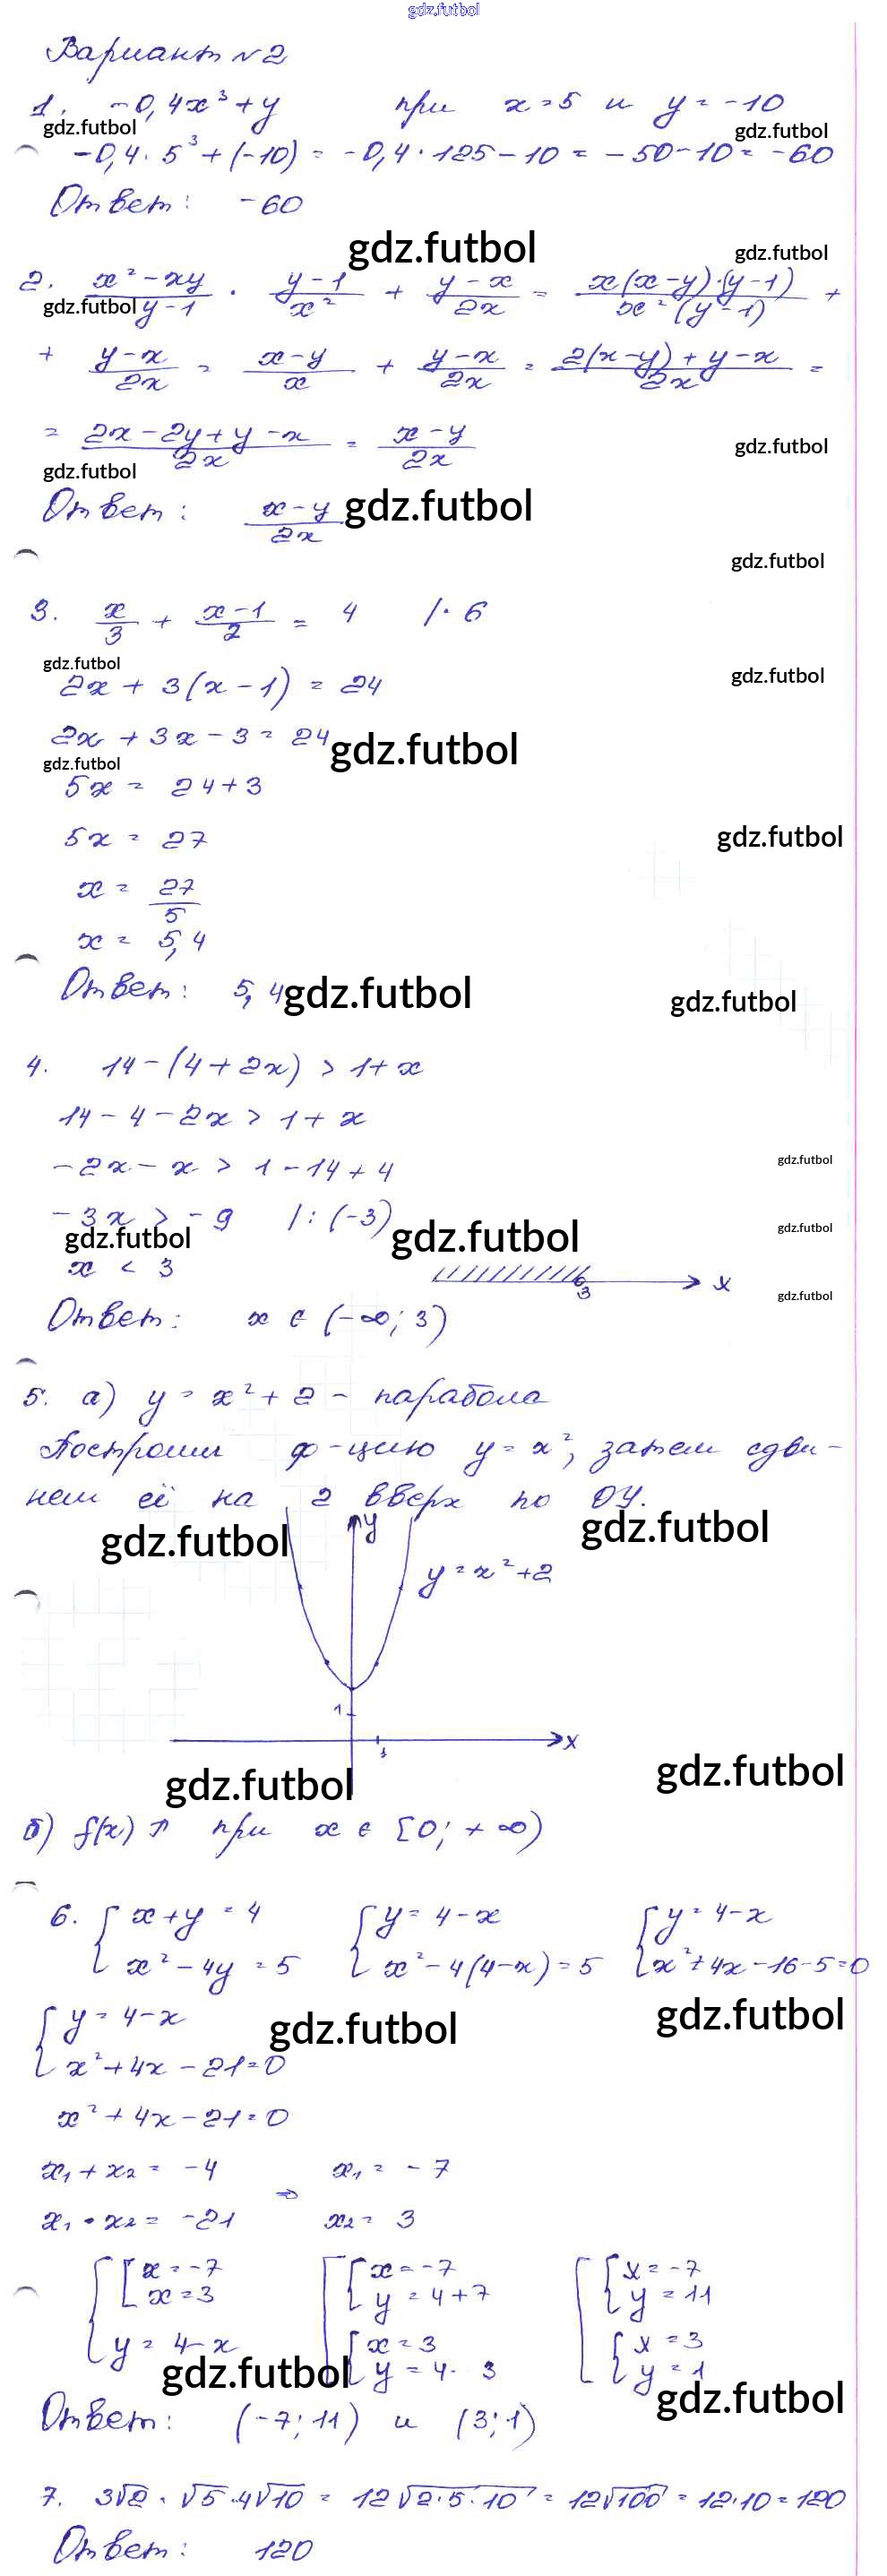 gdz.futbol
Вариант №2
1. -0,4x³+y при x=5 и y=-10
gdz.futbol gdz.futbol
-0,4·5³+(-10)=-0,4·125-10=-50-10=-60
Ответ: -60
gdz.futbol gdz.futbol
2. (x²-xy)/(y-1) · (y-1)/x² + (y-x)/2x = x(x-y)·(y-1)/x²(y-1) +
gdz.futbol
+ (y-x)/2x = (x-y)/x + (y-x)/2x = (2(x-y)+y-x)/2x =
= (2x-2y+y-x)/2x = (x-y)/2x
gdz.futbol gdz.futbol
Ответ: (x-y)/2x gdz.futbol
gdz.futbol
3. x/3 + (x-1)/2 = 4 /·6
gdz.futbol gdz.futbol
2x+3(x-1)=24
2x+3x-3=24 gdz.futbol
gdz.futbol
5x=24+3
5x=27 gdz.futbol
x=27/5
x=5,4
Ответ: 5,4 gdz.futbol gdz.futbol
4. 14-(4+2x)>1+x
14-4-2x>1+x
-2x-x>1-14+4 gdz.futbol
-3x>-9 /:(-3)
gdz.futbol gdz.futbol gdz.futbol
x<3 3 x
gdz.futbol
Ответ: x∈(-∞;3)
5. а) y=x²+2 - парабола
Построим ф-цию y=x², затем сдви-
нем её на 2 вверх по ОУ.
gdz.futbol y gdz.futbol
y=x²+2
1
1 x
gdz.futbol gdz.futbol
б) f(x)↗ при x∈[0;+∞)
6. {x+y=4 {y=4-x {y=4-x
x²-4y=5 x²-4(4-x)=5 x²+4x-16-5=0
{y=4-x gdz.futbol gdz.futbol
x²+4x-21=0
x²+4x-21=0
x₁+x₂=-4 x₁=-7
⇒
x₁·x₂=-21 x₂=3
{[x=-7 [{x=-7 [{x=-7
x=3 y=4+7 y=11
y=4-x {x=3 {x=3
gdz.futbol y=4-3 y=1
gdz.futbol
Ответ: (-7;11) и (3;1)
7. 3√2·√5·4√10=12√2·5·10=12√100=12·10=120
Ответ: 120